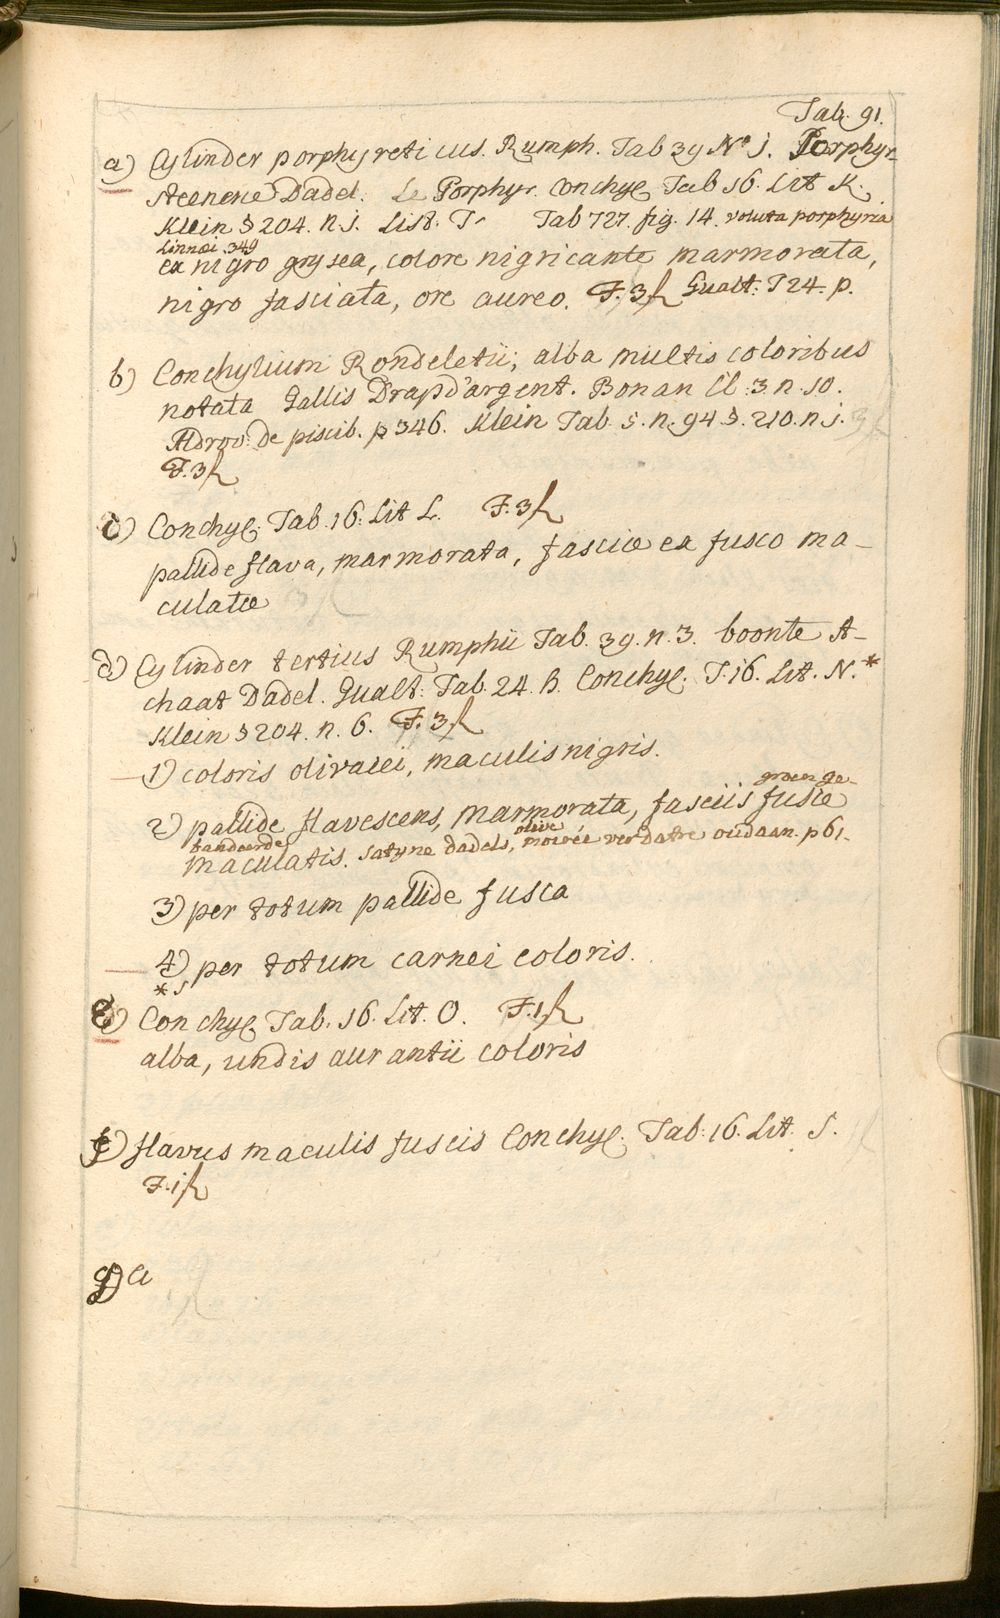 Tab. 91.
a) Cylinder porphyreticus. Rumph. Tab 39 No 1. Porphyr
steenene Dadel. Le Porphyr. Conchyl. Tab 16. Lit K.
Klein § 204. n. 1. List. T. Tab 727. fig. 14. voluta porphyria
Linnæi 349
ex nigro grysea, colore nigricante marmorata,
nigro fasciata, ore aureo. F. 3 Gualt. T 24. p.
b) Conchylium Rondeletii; alba multis coloribus
notata Gallis Drap d'argent. Bonan Cl. 3. n. 10.
Aldrov. de piscib. p 346. Klein Tab. 5. n. 94 §. 210. n 1.
F. 3
c) Conchyl. Tab. 16. Lit L. F. 3
pallide flava, marmorata, fasciæ ex fusco ma-
culatæ
d) Cylinder tertius Rumphii Tab. 39. n. 3. boonte A-
chaat Dadel. Gualt. Tab. 24. B. Conchyl. T. 16. Lit. N. *
Klein § 204. n. 6. F. 3
1) coloris olivacei, maculis nigris.
groen ge-
2) pallide flavescens, marmorata, fasciis fusce
bandeerde olive
maculatis. satyne dadels, moirée verdatre oudaan. p 61.
3) per totum pallide fusca
4) per totum carnei coloris.
* S
e) Conchyl. Tab. 16. Lit. O. F. 1
alba, undis aurantii coloris
f) flavus maculis fuscis Conchyl. Tab. 16. Lit. S.
F. 1
g) a